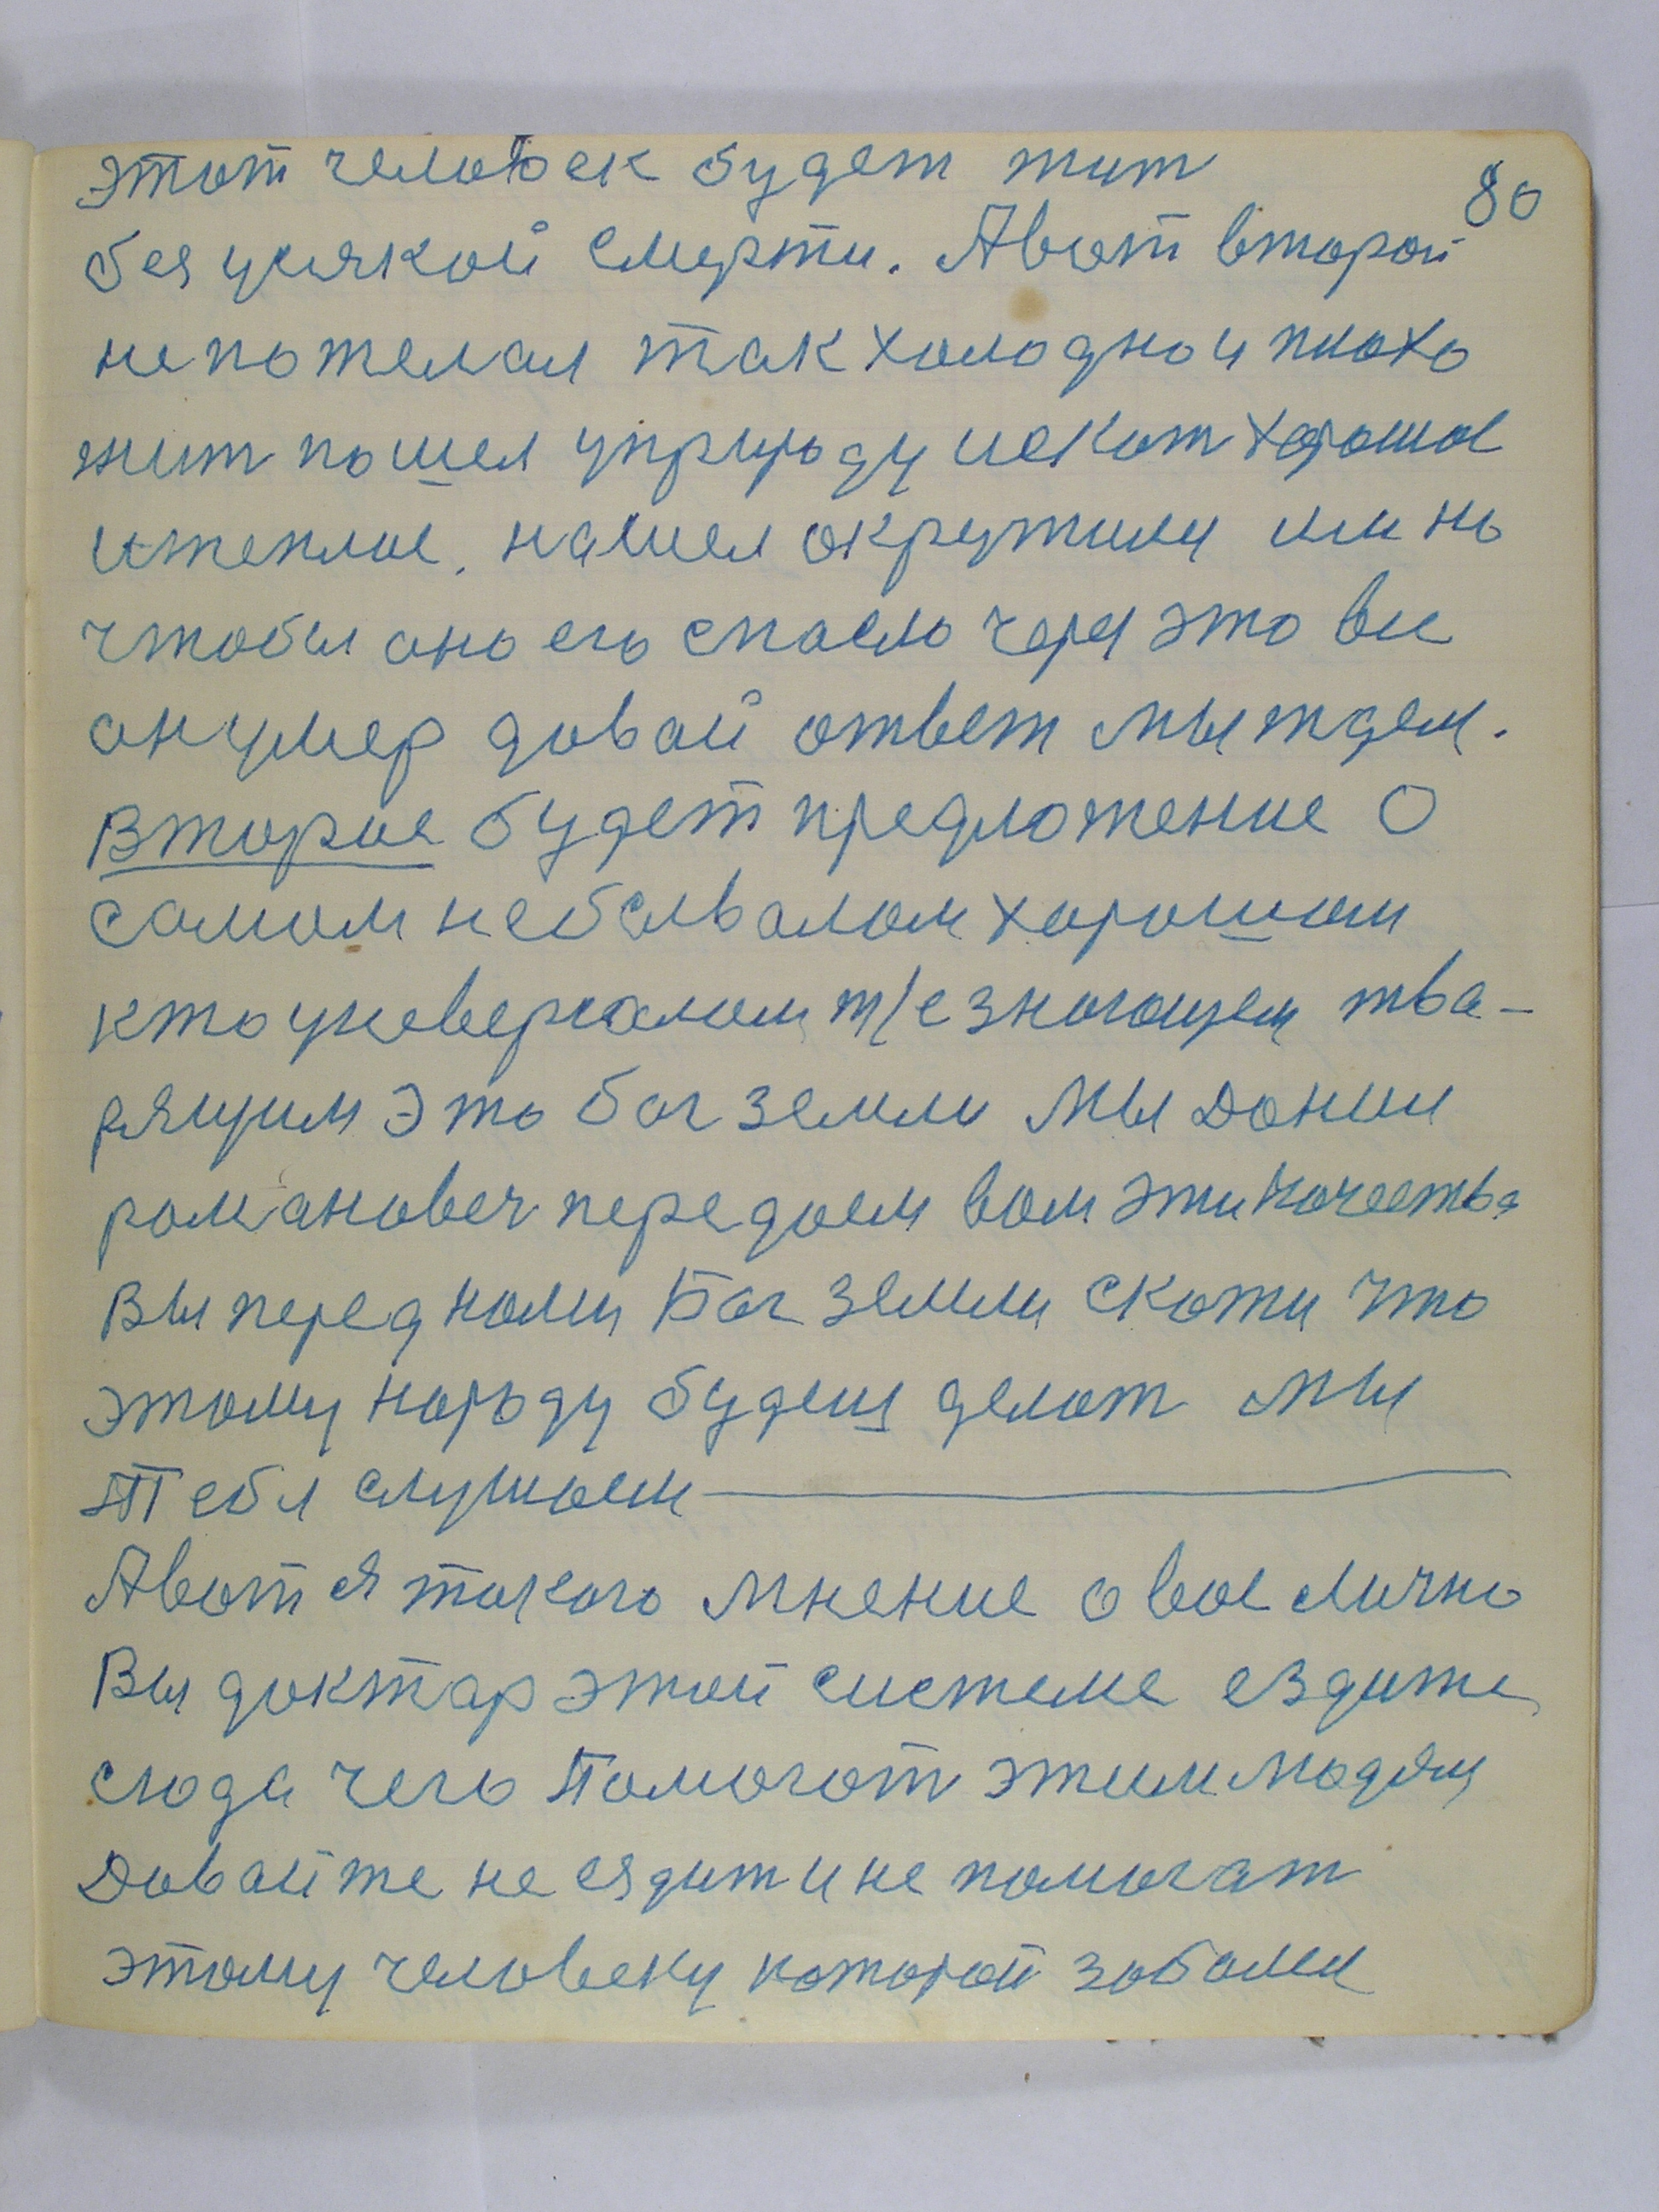 80
этот человек будет жит
без усякой смерти. Авот второй
непожелал так холодно и плохо
жит пошел уприроду искат хорошое
и теплое. нашел окружили им но
чтобы оно его спасло через это все
он умер довай ответ мы ждем.
Второе будет предложение О
самом небывалом хорошом
кто универсалом т/е знающем тва-
рящим Это бог земли Мы Донии
романовеч передоем вом эти кочества
Вы перед номи Бог земли скожи что
этому нороду будеш делот мы
Тебя слушоем
Авот я токого мнение о вос лично
Вы доктор этой системе ездите
сюда чего Помогот этим людям
Довайте не ездит и не помогат
этому человеку которой зоболел